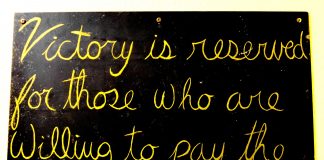 Victory is reserved
for those who are
Willing to pay the